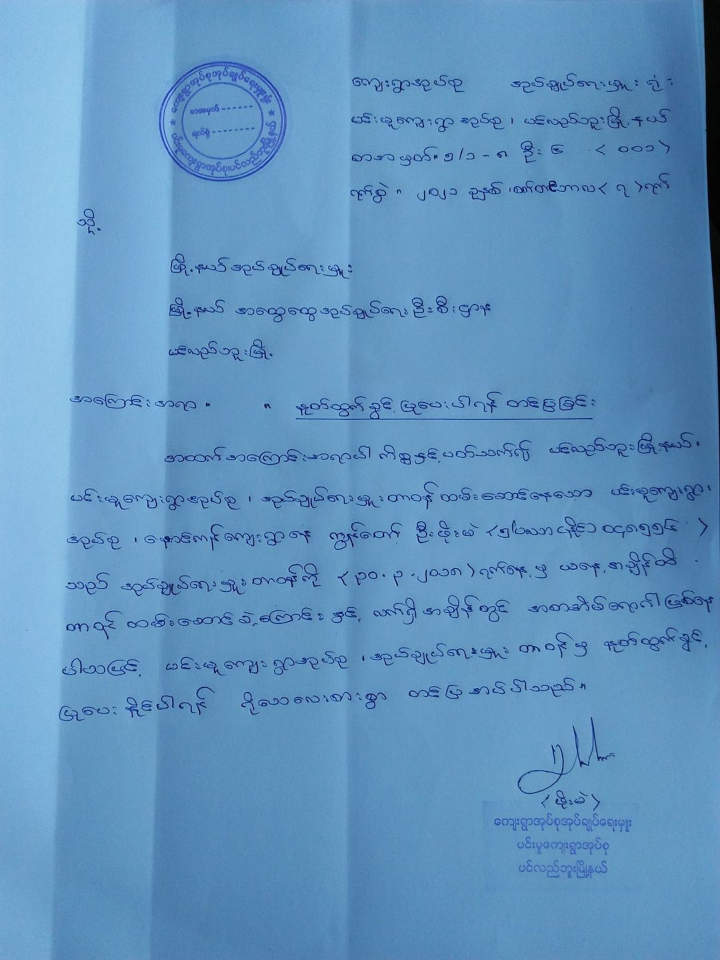 ကျေးရွာအုပ်စုအုပ်ချုပ်ရေးမှူးရုံး
စာအမှတ် - - - - - -
ရက်စွဲ - - - - - -
ပင်းမူကျေးရွာအုပ်စု ပင်လည်ဘူးမြို့နယ်
ကျေးရွာအုပ်စု အုပ်ချုပ်ရေးမှူးရုံး
ပင်းမူကျေးရွာအုပ်စု ၊ ပင်လည်ဘူးမြို့နယ်
စာအမှတ်၊ ၅/၁ - ၈ ဦး ၆ < ၀၀၁ >
ရက်စွဲ ။ ၂၀၂၁ ခုနှစ် ၊ စက်တင်ဘာလ < ၇ > ရက်
သို့
မြို့နယ်အုပ်ချုပ်ရေးမှူး
မြို့နယ် အထွေထွေအုပ်ချုပ်ရေးဦးစီးဌာန
ပင်လည်ဘူးမြို့
အကြောင်းအရာ ။ ။ နှုတ်ထွက်ခွင့်ပြုပေးပါရန် တင်ပြခြင်း
အထက်အကြောင်းအရာပါ ကိစ္စနှင့်ပတ်သက်၍ ပင်လည်ဘူးမြို့နယ် ၊
ပင်းမူကျေးရွာအုပ်စု ၊ အုပ်ချုပ်ရေးမှူးတာဝန် ထမ်းဆောင်နေသော ပင်းမူကျေးရွာ
အုပ်စု ၊ နောင်ကန်ကျေးရွာနေ ကျွန်တော် ဦးဖိုးမဲ
သည် အုပ်ချုပ်ရေးမှူးတာဝန်ကို < ၃၀ . ၃ . ၂၀၁၈ > ရက်နေ့မှ ယနေ့အချိန်ထိ
တာဝန် ထမ်းဆောင်ခဲ့ကြောင်းနှင့် လက်ရှိအချိန်တွင် အစာအိမ်ရောဂါ ဖြစ်နေ
ပါသဖြင့် ပင်းမူကျေးရွာအုပ်စု ၊ အုပ်ချုပ်ရေးမှူး တာဝန်မှ နှုတ်ထွက်ခွင့်
ပြုပေးနိုင်ပါရန် ရိုသေလေးစားစွာ တင်ပြအပ်ပါသည် ။
< ဖိုးမဲ >
ကျေးရွာအုပ်စုအုပ်ချုပ်ရေးမှူး
ပင်းမူကျေးရွာအုပ်စု
ပင်လည်ဘူးမြို့နယ်